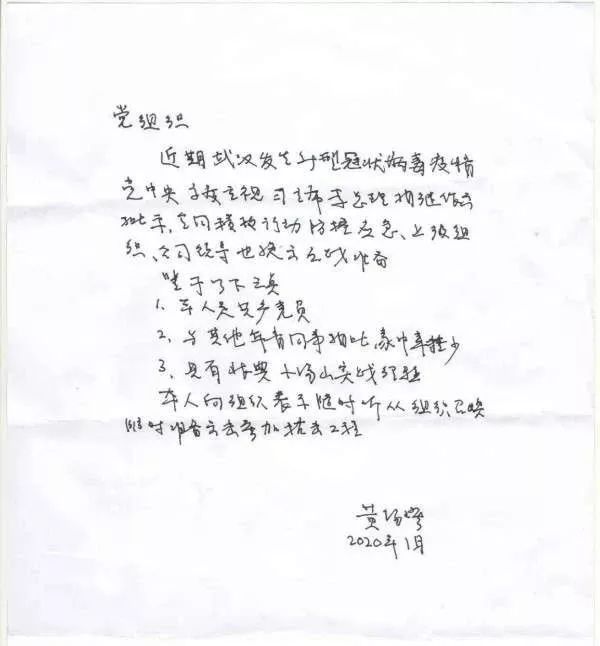 党组织
近期武汉发生新型冠状病毒疫情
党中央高度重视 习主席李总理相继作出
批示,全国积极行动防控应急、上级组
织、公司领导也提出应战准备
鉴于以下三点
1. 本人是共产党员
2. 与其他年青同事相比,家中牵挂少
3. 具有非典小汤山实战经验
本人向组织表示随时听从组织召唤
随时准备出击参加抗击工程
黄锡
2020年1月